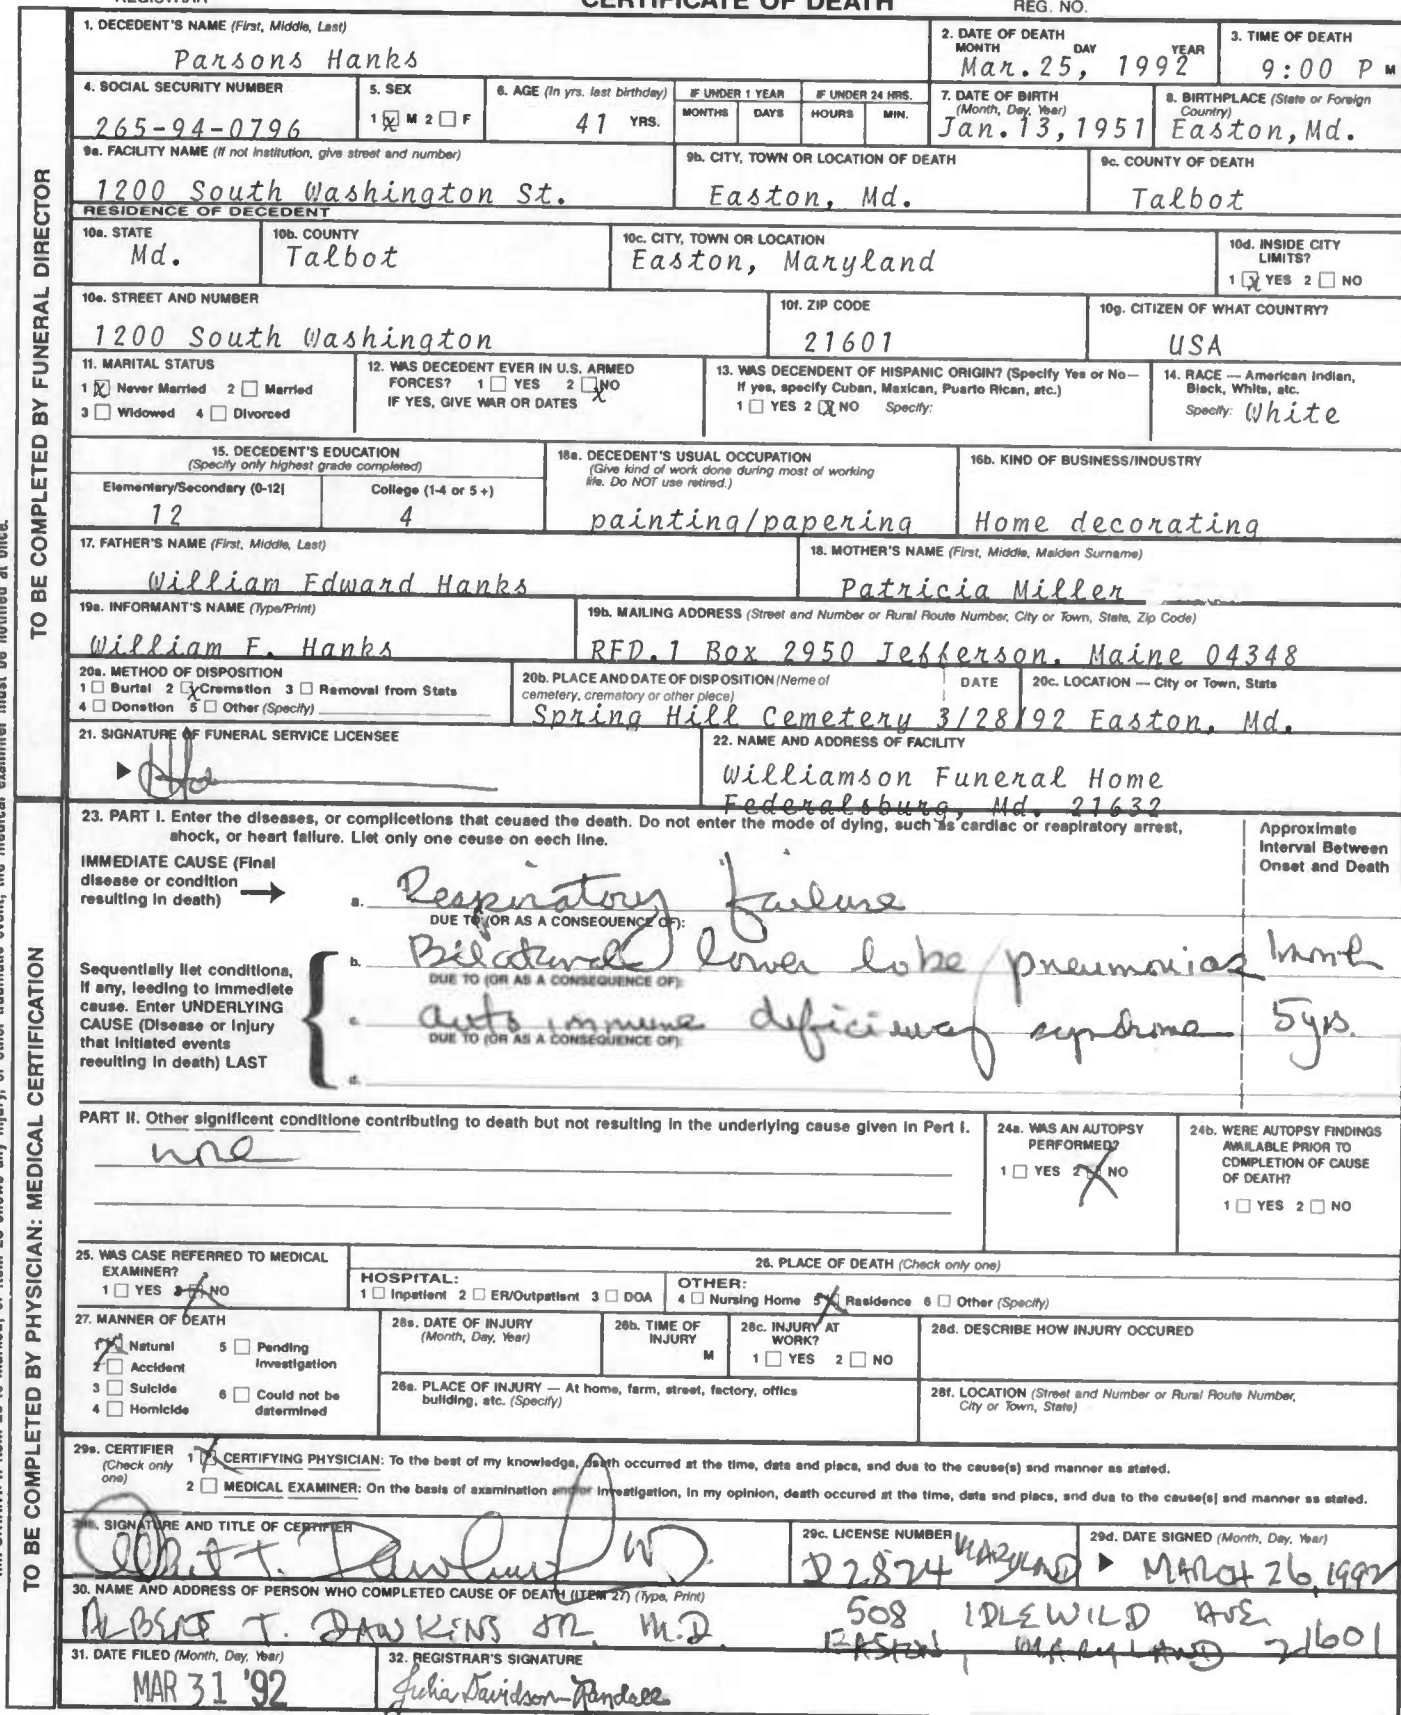 CERTIFICATE OF DEATH
REG. NO.
TO BE COMPLETED BY FUNERAL DIRECTOR
1. DECEDENT'S NAME (First, Middle, Last)
Parsons Hanks
2. DATE OF DEATH
MONTH DAY YEAR
Mar. 25, 1992
3. TIME OF DEATH
9:00 P M
4. SOCIAL SECURITY NUMBER
265-94-0796
5. SEX
1 X M 2 □ F
6. AGE (In yrs. last birthday)
41 YRS.
IF UNDER 1 YEAR
MONTHS DAYS
IF UNDER 24 HRS.
HOURS MIN.
7. DATE OF BIRTH
(Month, Day, Year)
Jan. 13, 1951
8. BIRTHPLACE (State or Foreign
Country)
Easton, Md.
9a. FACILITY NAME (If not institution, give street and number)
1200 South Washington St.
9b. CITY, TOWN OR LOCATION OF DEATH
Easton, Md.
9c. COUNTY OF DEATH
Talbot
RESIDENCE OF DECEDENT
10a. STATE
Md.
10b. COUNTY
Talbot
10c. CITY, TOWN OR LOCATION
Easton, Maryland
10d. INSIDE CITY
LIMITS?
1 X YES 2 □ NO
10e. STREET AND NUMBER
1200 South Washington
10f. ZIP CODE
21601
10g. CITIZEN OF WHAT COUNTRY?
USA
11. MARITAL STATUS
1 X Never Married 2 □ Married
3 □ Widowed 4 □ Divorced
12. WAS DECEDENT EVER IN U.S. ARMED
FORCES? 1 □ YES 2 □ NO
IF YES, GIVE WAR OR DATES X
13. WAS DECENDENT OF HISPANIC ORIGIN? (Specify Yes or No—
If yes, specify Cuban, Mexican, Puerto Rican, etc.)
1 □ YES 2 X NO Specify:
14. RACE — American Indian,
Black, White, etc.
Specify: White
15. DECEDENT'S EDUCATION
(Specify only highest grade completed)
Elementary/Secondary (0-12)
12
College (1-4 or 5+)
4
16a. DECEDENT'S USUAL OCCUPATION
(Give kind of work done during most of working
life. Do NOT use retired.)
painting/papering
16b. KIND OF BUSINESS/INDUSTRY
Home decorating
17. FATHER'S NAME (First, Middle, Last)
William Edward Hanks
18. MOTHER'S NAME (First, Middle, Maiden Surname)
Patricia Miller
19a. INFORMANT'S NAME (Type/Print)
William E. Hanks
19b. MAILING ADDRESS (Street and Number or Rural Route Number, City or Town, State, Zip Code)
RFD.1 Box 2950 Jefferson, Maine 04348
20a. METHOD OF DISPOSITION
1 □ Burial 2 X Cremation 3 □ Removal from State
4 □ Donation 5 □ Other (Specify)
20b. PLACE AND DATE OF DISPOSITION (Name of
cemetery, crematory or other place)
DATE
Spring Hill Cemetery 3/28/92
20c. LOCATION — City or Town, State
Easton, Md.
21. SIGNATURE OF FUNERAL SERVICE LICENSEE
22. NAME AND ADDRESS OF FACILITY
Williamson Funeral Home
Federalsburg, Md. 21632
TO BE COMPLETED BY PHYSICIAN: MEDICAL CERTIFICATION
23. PART I. Enter the diseases, or complications that caused the death. Do not enter the mode of dying, such as cardiac or respiratory arrest,
shock, or heart failure. List only one cause on each line.
Approximate
Interval Between
Onset and Death
IMMEDIATE CAUSE (Final
disease or condition
resulting in death)
a. Respiratory failure
DUE TO (OR AS A CONSEQUENCE OF):
b. Bilateral lower lobe pneumonias 1 month
DUE TO (OR AS A CONSEQUENCE OF):
Sequentially list conditions,
if any, leading to immediate
cause. Enter UNDERLYING
CAUSE (Disease or injury
that initiated events
resulting in death) LAST
c. auto immune deficiency syndrome 5 yrs.
DUE TO (OR AS A CONSEQUENCE OF):
d.
PART II. Other significant conditions contributing to death but not resulting in the underlying cause given in Part I.
none
24a. WAS AN AUTOPSY
PERFORMED?
1 □ YES 2 X NO
24b. WERE AUTOPSY FINDINGS
AVAILABLE PRIOR TO
COMPLETION OF CAUSE
OF DEATH?
1 □ YES 2 □ NO
25. WAS CASE REFERRED TO MEDICAL
EXAMINER?
1 □ YES 2 X NO
26. PLACE OF DEATH (Check only one)
HOSPITAL:
1 □ Inpatient 2 □ ER/Outpatient 3 □ DOA
OTHER:
4 □ Nursing Home 5 X Residence 6 □ Other (Specify)
27. MANNER OF DEATH
1 X Natural 5 □ Pending
Investigation
2 □ Accident
3 □ Suicide 6 □ Could not be
determined
4 □ Homicide
28a. DATE OF INJURY
(Month, Day, Year)
28b. TIME OF
INJURY
M
28c. INJURY AT
WORK?
1 □ YES 2 □ NO
28d. DESCRIBE HOW INJURY OCCURED
28e. PLACE OF INJURY — At home, farm, street, factory, office
building, etc. (Specify)
28f. LOCATION (Street and Number or Rural Route Number,
City or Town, State)
29a. CERTIFIER
(Check only
one)
1 X CERTIFYING PHYSICIAN: To the best of my knowledge, death occurred at the time, date and place, and due to the cause(s) and manner as stated.
2 □ MEDICAL EXAMINER: On the basis of examination and/or investigation, in my opinion, death occured at the time, date and place, and due to the cause(s) and manner as stated.
29b. SIGNATURE AND TITLE OF CERTIFIER
Albert T. Dawkins MD.
29c. LICENSE NUMBER
D2824 MARYLAND
29d. DATE SIGNED (Month, Day, Year)
MARCH 26, 1992
30. NAME AND ADDRESS OF PERSON WHO COMPLETED CAUSE OF DEATH (ITEM 27) (Type, Print)
ALBERT T. DAWKINS JR. M.D. 508 IDLEWILD AVE.
EASTON, MARYLAND 21601
31. DATE FILED (Month, Day, Year)
MAR 31 '92
32. REGISTRAR'S SIGNATURE
Julia Davidson-Randall